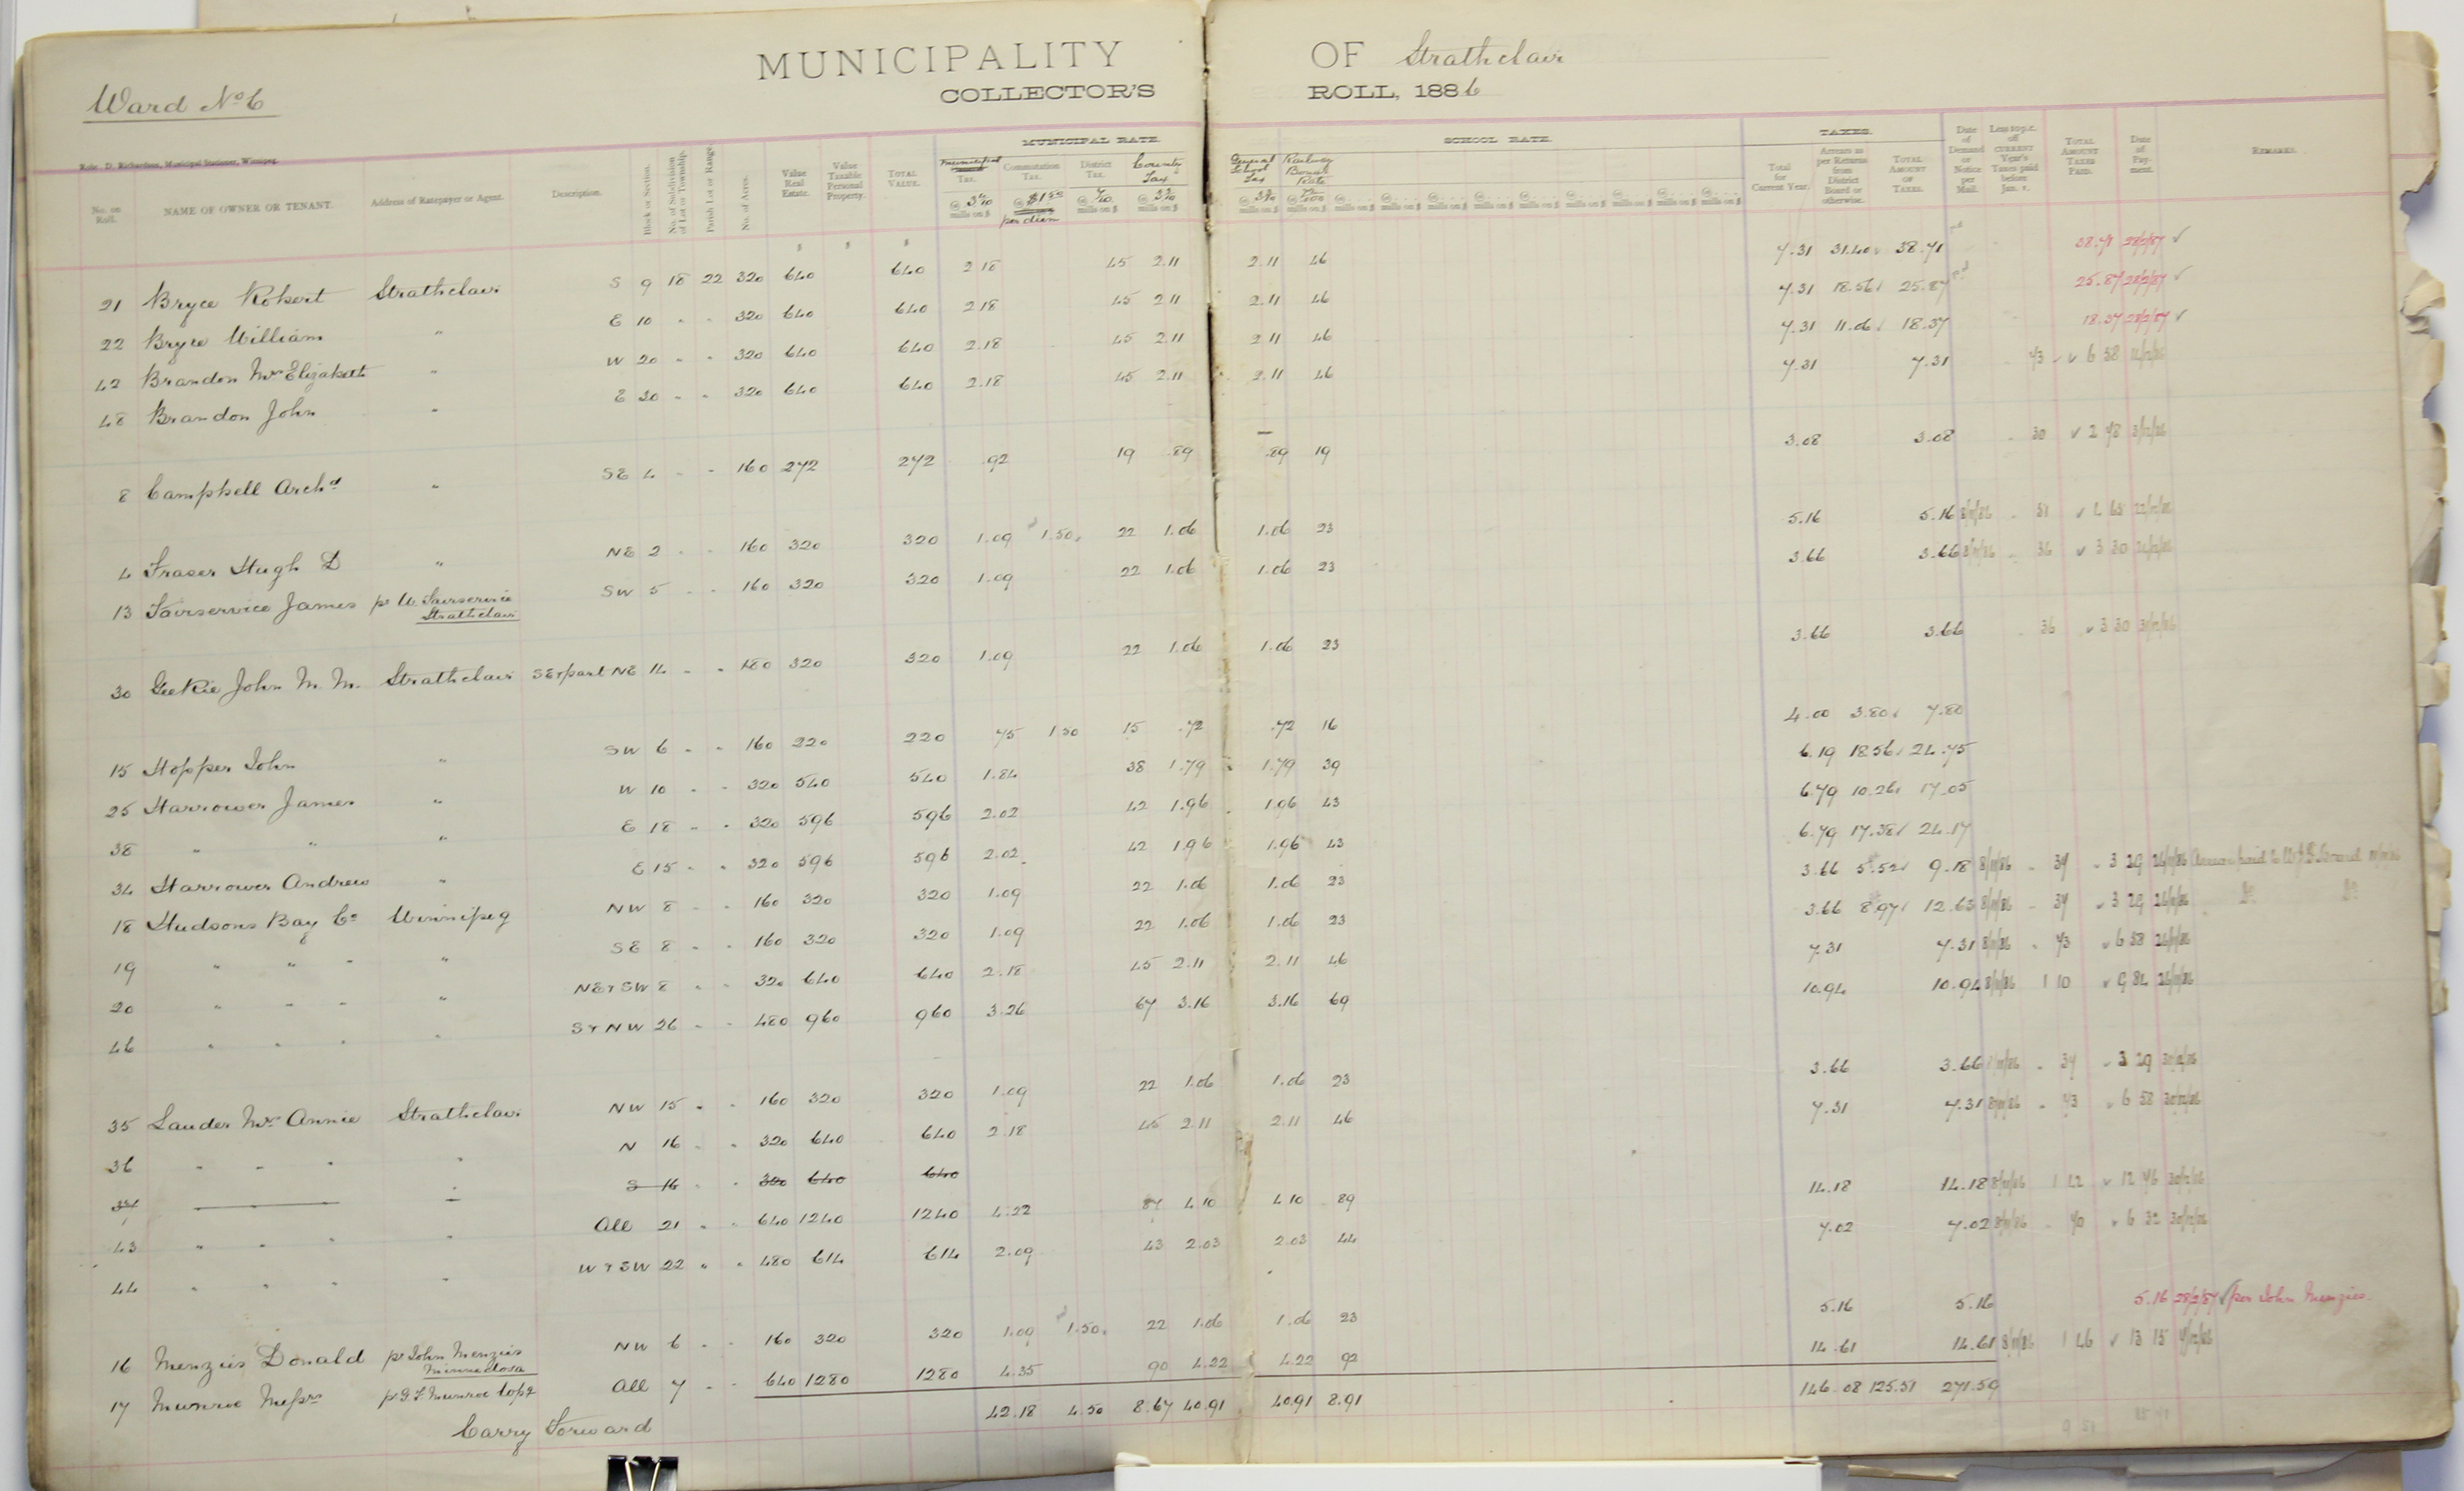 MUNICIPALITY OF Strathclair
COLLECTOR'S ROLL, 1886
Ward No 6
Robt. D. Richardson, Municipal Stationer, Winnipeg.
MUNICIPAL RATE. SCHOOL RATE. TAXES.
No. on Roll. NAME OF OWNER OR TENANT. Address of Ratepayer or Agent. Description. Block or Section. No. of Subdivision of Lot or Township. Parish Lot or Range. No. of Acres. Value Real Estate. Value Taxable Personal Property. TOTAL VALUE. Municipal Tax. Commutation Tax. District Tax. County Tax General School Tax Railway Bonus Rate Total for Current Year. Arrears as per Returns from District Board or otherwise. TOTAL AMOUNT OF TAXES. Date of Demand or Notice per Mail. Less 10 p.c. off CURRENT Year's Taxes paid before Jan. 1. TOTAL AMOUNT TAXES PAID. Date of Payment. REMARKS.
21 Bryce Robert Strathclair S 9 18 22 320 640 640 2 18 45 2.11 2.11 46 7.31 31.40 38.71 38.71 28/2/87 ✓
22 Bryce William " E 10 " " 320 640 640 2 18 45 2 11 2.11 46 7.31 18.56 25.87 25.87 28/2/87 ✓
42 Brandon Mrs Elizabeth " W 20 " " 320 640 640 2.18 45 2.11 2 11 46 7.31 11.06 18.37 18.37 28/2/87 ✓
48 Brandon John " E 30 " " 320 640 640 2.18 45 2.11 2.11 46 7.31 7.31 73 ✓ 6 58
8 Campbell Archd " SE 4 " " 160 272 272 .92 19 .89 .89 19 3.08 3.08 30 ✓ 2 78 3/12/86
4 Fraser Hugh D " NE 2 " " 160 320 320 1.09 1.50 22 1.06 1.06 23 5.16 5.16 8/11/86 51 ✓ 4 65 22/12/86
13 Fairservice James pr W. Fairservice SW 5 " " 160 320 320 1.09 22 1.06 1.06 23 3.66 3.66 8/11/86 36 ✓ 3 30
Strathclair
30 Geekie John M. M. Strathclair SE & part NE 14 " " 180 320 320 1.09 22 1.06 1.06 23 3.66 3.66 36 ✓ 3 30 31/12/86
15 Hopper John " SW 6 " " 160 220 220 75 1.50 15 .72 .72 16 4.00 3.80 7.80
25 Harrower James " W 10 " " 320 540 540 1.84 38 1.79 1.79 39 6.19 18.56 24.75
38 " " " E 18 " " 320 596 596 2.02 42 1.96 1.96 43 6.79 10.26 17.05
34 Harrower Andrew " E 15 " " 320 596 596 2.02 42 1.96 1.96 43 6.79 17.38 24.17
18 Hudsons Bay Co Winnipeg NW 8 " " 160 320 320 1.09 22 1.06 1.06 23 3.66 5.52 9.18 8/11/86 37 3 29 26/11/86
19 " " " " SE 8 " " 160 320 320 1.09 22 1.06 1.06 23 3.66 8.97 12.63 8/11/86 37 3 29 26/11/86 Do Do
20 " " " " NE & SW 8 " " 320 640 640 2.18 45 2.11 2.11 46 7.31 7.31 8/11/86 73 6 58 26/11/86
46 " " " " S & NW 26 " " 480 960 960 3.26 67 3.16 3.16 69 10.94 10.94 8/11/86 1 10 ✓ 9 84 26/11/86
35 Lauder Mrs Annie Strathclair NW 15 " " 160 320 320 1.09 22 1.06 1.06 23 3.66 3.66 37 3 29 30/12/86
36 " " " " N 16 " " 320 640 640 2.18 45 2 11 2.11 46 7.31 7.31 8/11/86 73 6 58 30/12/86
37 " S 16 " " 320 640 640
43 " " " " All 21 " " 640 1240 1240 4.22 87 4 10 4 10 89 14.18 14.18 8/11/86 1 42 ✓ 12 76 30/12/86
44 " " " " W & SW 22 " " 480 614 614 2.09 43 2.03 2.03 44 7.02 7.02 8/11/86 70 6 32 30/12/86
16 Menzies Donald pr John Menzies NW 6 " " 160 320 320 1.09 1.50 22 1.06 1.06 23 5.16 5.16 5.16 28/2/87 ✓ per John Menzies
Minnedosa
17 Munroe Messrs pr G F Munroe All 7 " " 640 1280 1280 4.35 90 4.22 4.22 92 14.61 14.61 8/11/86 1 46 ✓ 13 15
Carry Forward 42.18 4.50 8.67 40.91 40.91 8.91 146.08 125.51 271.59